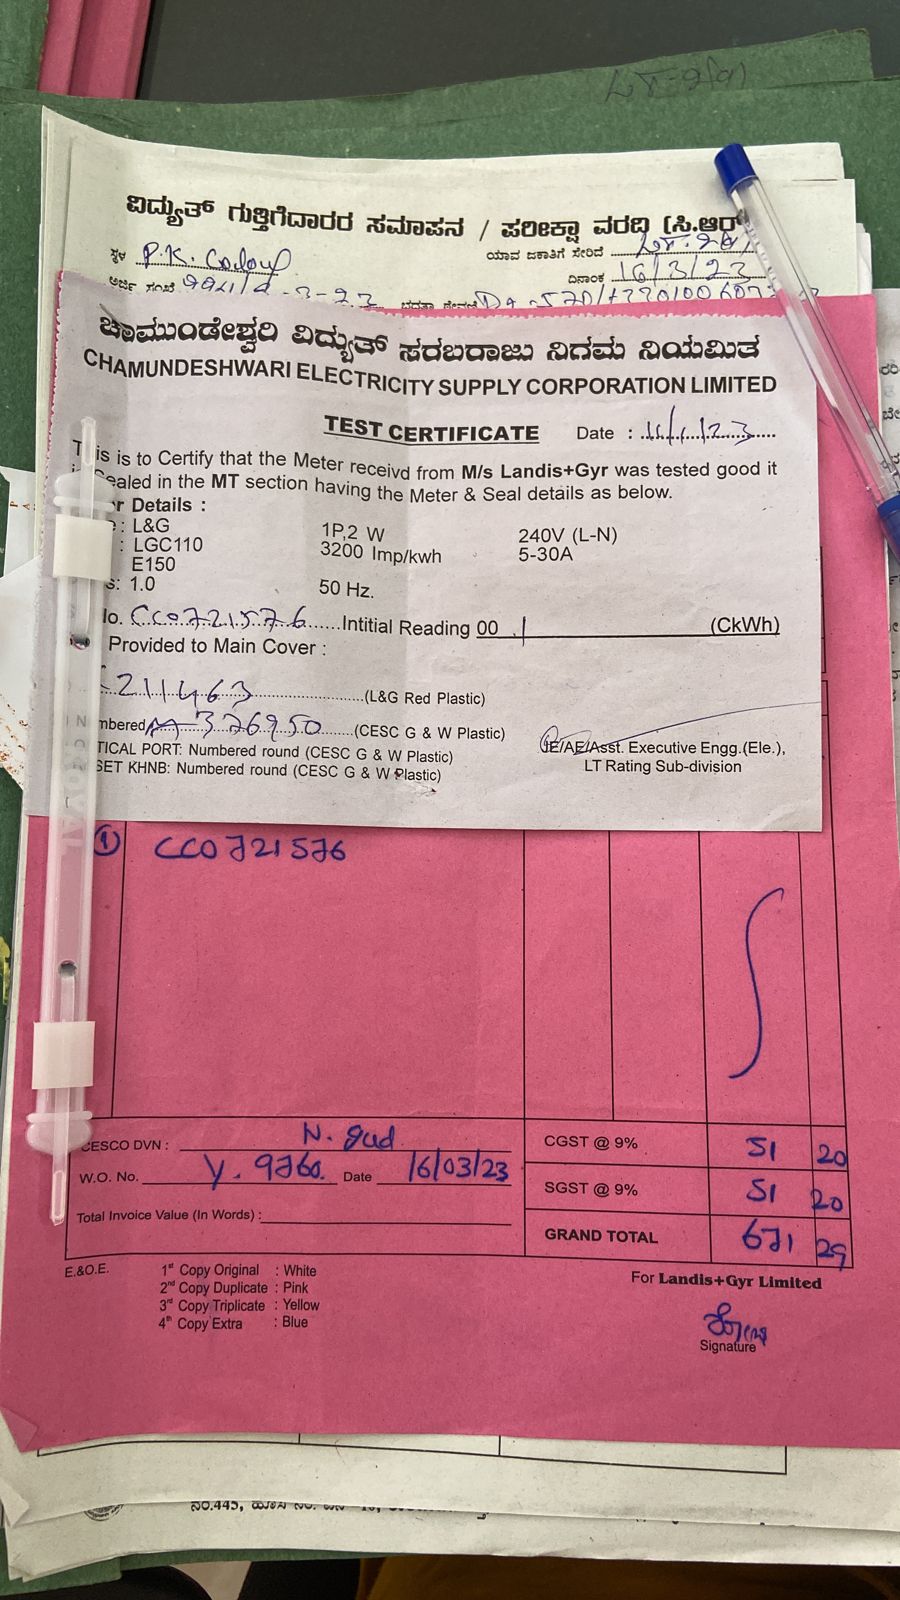 ವಿದ್ಯುತ್ ಗುತ್ತಿಗೆದಾರರ ಸಮಾಪನ / ಪರೀಕ್ಷಾ ವರದಿ (ಸಿ.ಆರ್
ಸ್ಥಳ P.K. ಯಾವ ಜಕಾತಿಗೆ ಸೇರಿದೆ
ದಿನಾಂಕ 16/3/23
ಅರ್ಜಿ ಸಂಖೆ
ಚಾಮುಂಡೇಶ್ವರಿ ವಿದ್ಯುತ್ ಸರಬರಾಜು ನಿಗಮ ನಿಯಮಿತ
CHAMUNDESHWARI ELECTRICITY SUPPLY CORPORATION LIMITED
TEST CERTIFICATE Date :
is is to Certify that the Meter receivd from M/s Landis+Gyr was tested good it
ealed in the MT section having the Meter & Seal details as below.
r Details :
: L&G 1P,2 W 240V (L-N)
: LGC110 3200 Imp/kwh 5-30A
E150
s: 1.0 50 Hz.
lo. CC0721576 Intitial Reading 00 1 (CkWh)
Provided to Main Cover :
211463 (L&G Red Plastic)
mbered 376950 (CESC G & W Plastic)
TICAL PORT: Numbered round (CESC G & W Plastic)
SET KHNB: Numbered round (CESC G & W Plastic)
JE/AE/Asst. Executive Engg.(Ele.),
LT Rating Sub-division
1 CC0721576
CESCO DVN : N. gud CGST @ 9% 51 20
W.O. No. Y. 9760. Date 16/03/23 SGST @ 9% 51 20
Total Invoice Value (In Words) : GRAND TOTAL 671 29
E.&O.E. 1st Copy Original : White
2nd Copy Duplicate : Pink
3rd Copy Triplicate : Yellow
4th Copy Extra : Blue
For Landis+Gyr Limited
Signature
ನಂ.445,